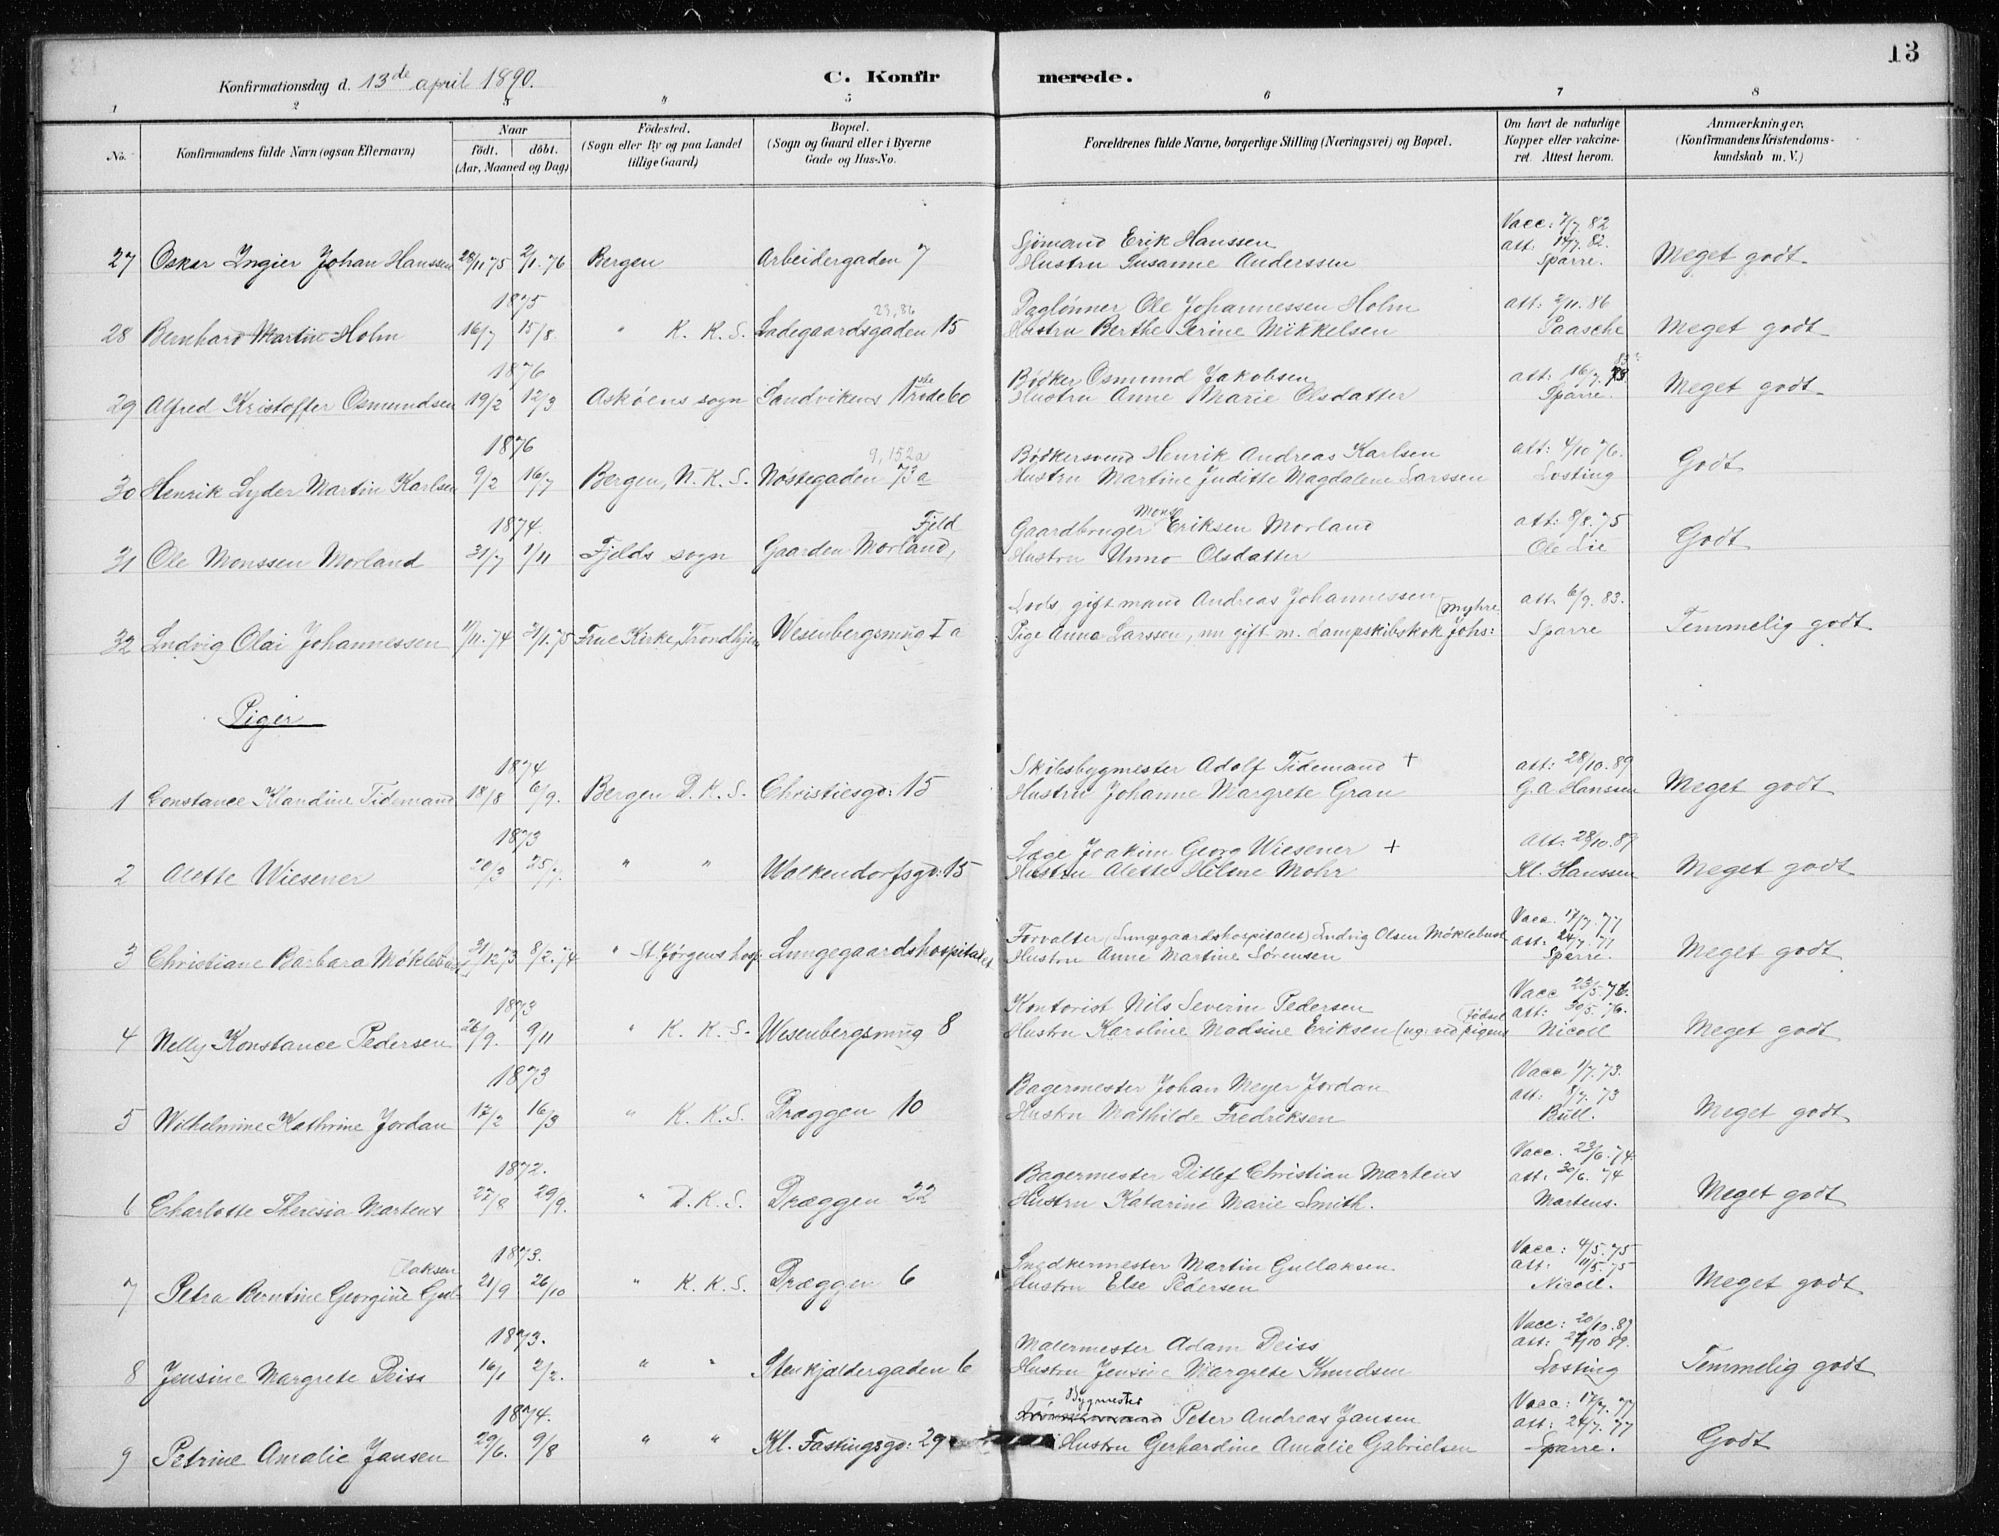 13
Konfirmationsdag d. 13de april 1890.
C. Konfirmerede.
1 2 3 4 5 6 7 8
No.
Konfirmandens fulde Navn (ogsaa Efternavn)
Naar
födt. döbt.
(Aar, Maaned og Dag)
Födested.
(Sogn eller By og paa Landet tillige Gaard)
Bopæl.
(Sogn og Gaard eller i Byerne Gade og Hus-No.
Forældrenes fulde Navne, borgerlige Stilling (Næringsvei) og Bopæl.
Om havt de naturlige Kopper eller vakcineret. Attest herom.
Anmærkninger,
(Konfirmandens Kristendomskundskab m. V.)
27 Oskar Ingier Johan Hanssen 28/11 75 2/1. 76 Bergen Arbeidergaden 7
Sjömand Erik Hanssen
Hustru Susanne Anderssen
Vacc: 7/7 82
att. 14/7. 82.
Sparre.
Meget godt.
1875
28 Bernhard Martin Holm 16/7 15/8. " K. K. S. Ladegaardsgaden 15
23, 86
Daglönner Ole Johannessen Holm
Hustru Berthe Serine Mikkelsen
att: 2/11. 86
Paasche
Meget godt
1876
29 Alfred Kristoffer Osmundsen 19/2 12/3 Askøens sogn Sandvikens 1ste rode 60
Bödker Osmund Jakobsen
Hustru Anne Marie Olsdatter
att: 16/7.
Sparre.
Meget godt
1876
30 Henrik Lyder Martin Karlsen 9/2 16/7 Bergen, N. K. S. Nöstegaden 73a
9, 152a
Bödkersvend Henrik Andreas Karlsen
Hustru Martine Juditte Magdalene Larssen
att: 4/10 76.
Losting
Godt
1874.
31 Ole Monssen Morland 31/7 1/11 Fjelds sogn Gaarden Morland, Fjeld
Gaardbruger Mons Eriksen Morland
Hustru Unno Olsdatter
att: 8/8. 75
Ole Lie
Godt
32 Ludvig Olai Johannessen 11/11. 74 21/1. 75 Frue Kirke, Trondhjem Wesenbergsmug I a
Lods, gift mand Andreas Johannessen [Myhre
Pige Anna Larssen, nu gift m. dampskibskok Johs:
att. 6/9. 83.
Sparre
Temmelig godt
Piger
1874
1 Constance Klaudine Tidemand 18/8 6/9. Bergen D. K. S. Christiesgd: 15
Skibsbygmester Adolf Tidemand +
Hustru Johanne Margrete Gran
att: 28/10. 89
G. A Hanssen
Meget godt
1873
2 Alette Wiesener 20/3 25/7. " " Walkendorfsgd: 15
Læge Joakim Georg Wiesener +
Hustru Alette Hilme Mohr
Att: 28/10. 89
Kl. Hanssen
Meget godt
3 Christiane Barbara Möklebust 31/12 73 8/2. 74 " St. Jörgens hosp. Lungegaardshospitalet
Forvalter (Lungegaardshospitalet) Ludvig Olsen Möklebust
Hustru Anne Martine Sørensen
Vacc. 17/7. 77
att: 24/7. 77
Sparre.
Meget godt
1873
4 Nelly Konstance Pedersen 26/9. 9/11 " K. K. S. Wesenbergsmug 8
Kontorist Nils Severin Pedersen
Hustru Karoline Madsine Eriksen (ug. ved pigens födsel
Vacc 23/5. 76.
att: 30/5. 76.
Nicoll
Meget godt
1873
5 Wilhelmine Kathrine Jordan 12/2 16/3 " K. K. S. Dræggen 10
Bagermester Johan Meyer Jordan
Hustru Mathilde Fredriksen.
Vacc 1/7. 73.
att. 8/7. 73
Bull.
Meget godt
1872.
6 Charlotte Theresia Martens 27/8 29/9. " D. K. S. Dræggen 22
Bagermester Ditlef Christian Martens
Hustru Katarine Marie Smith.
Vacc. 23/6. 74
att: 30/6. 74
Martens.
Meget godt
1873.
7 Petra Berntine Georgine Gullaksen 21/9 26/10 " K. K. S. Dræggen 6
Snedkermester Martin Gullaksen
Hustru Else Pedersen
Vacc: 4/5. 75
att: 11/5. 75
Nicoll.
Meget godt
1873.
8 Jensine Margrete Deiss 16/1 2/2. " " Stenkjældergaden 6
Malermester Adam Deiss
Hustru Jensine Margrete Knudsen
Vacc: 20/10. 89
att: 27/10 89.
Losting
Temmelig godt
1874.
9 Petrine Amalie Jansen 29/6. 9/8 " " Kl. Fastingsgd: 29
Bygmester Peter Andreas Jansen
Hustru Gerhardine Amalie Gabrielsen
Vacc: 17/7. 77
att: 24/7. 77
Sparre.
Godt